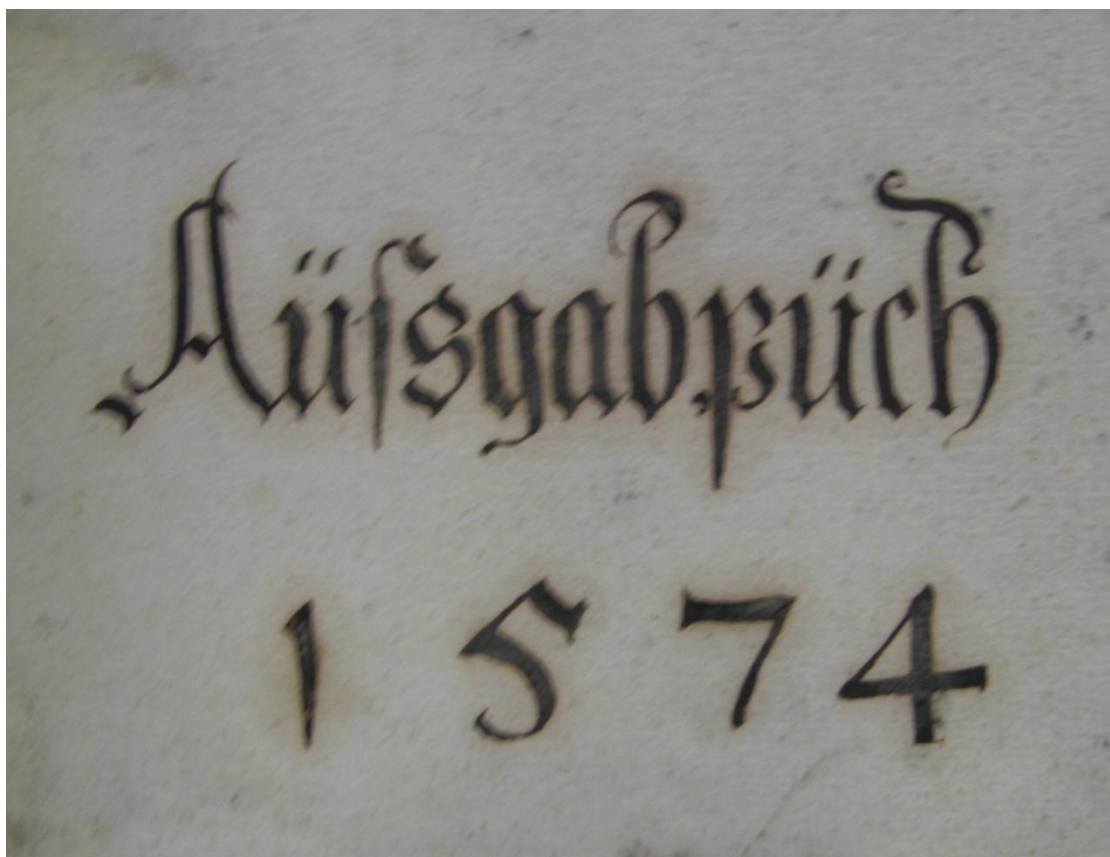 Aüſsgabpüch
1574